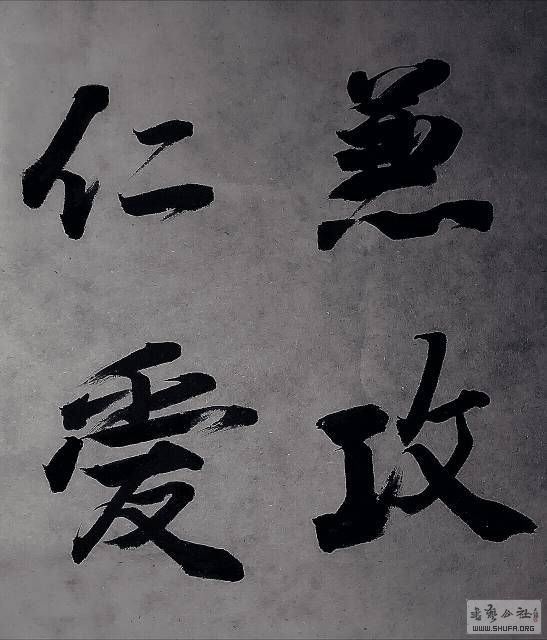 兼攻
仁爱
書藝公社
WWW.SHUFA.ORG